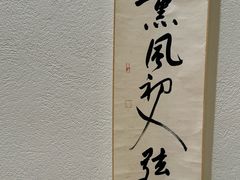 薫風初入弦